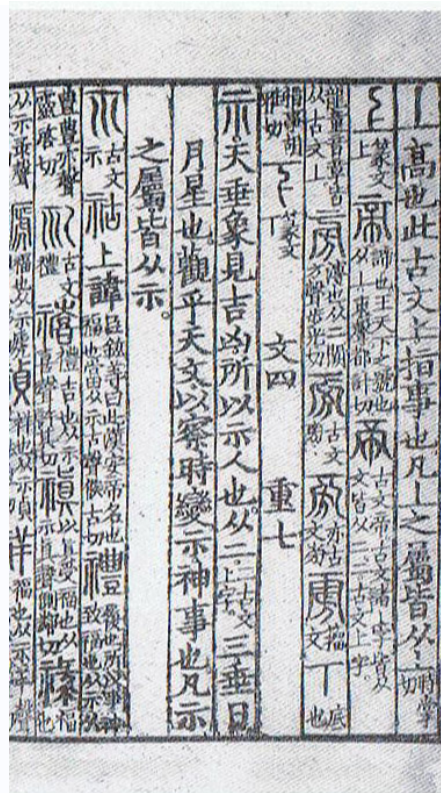 丄高也此古文上指事也凡丄之屬皆从丄時掌切
𠄞篆文上帝諦也王天下之號也从丄朿聲都計切帝古文帝古文諸丄字皆从一篆文皆从二二古文上字。
龍童音章皆从古文丄旁溥也从二闕方聲步光切旁古文旁旁亦古文旁雱籒文丅底也
指事胡雅切𠄟篆文丅文四重七
示天垂象見吉凶所以示人也。从二二古文上字。三垂日
月星也。觀乎天文以察時變示神事也凡示
之屬皆从示。
𥘅古文示祜上諱臣鉉等曰此漢安帝名也福也當从示古聲候古切禮履也所以事神致福也从示从
豊豊亦聲靈啓切𠃞古文禮禧禮吉也从示喜聲許其切禛以真受福也从示真聲側鄰切祿福也
从示彔聲福也从示禎祥也从示貞祥福也从示羊聲